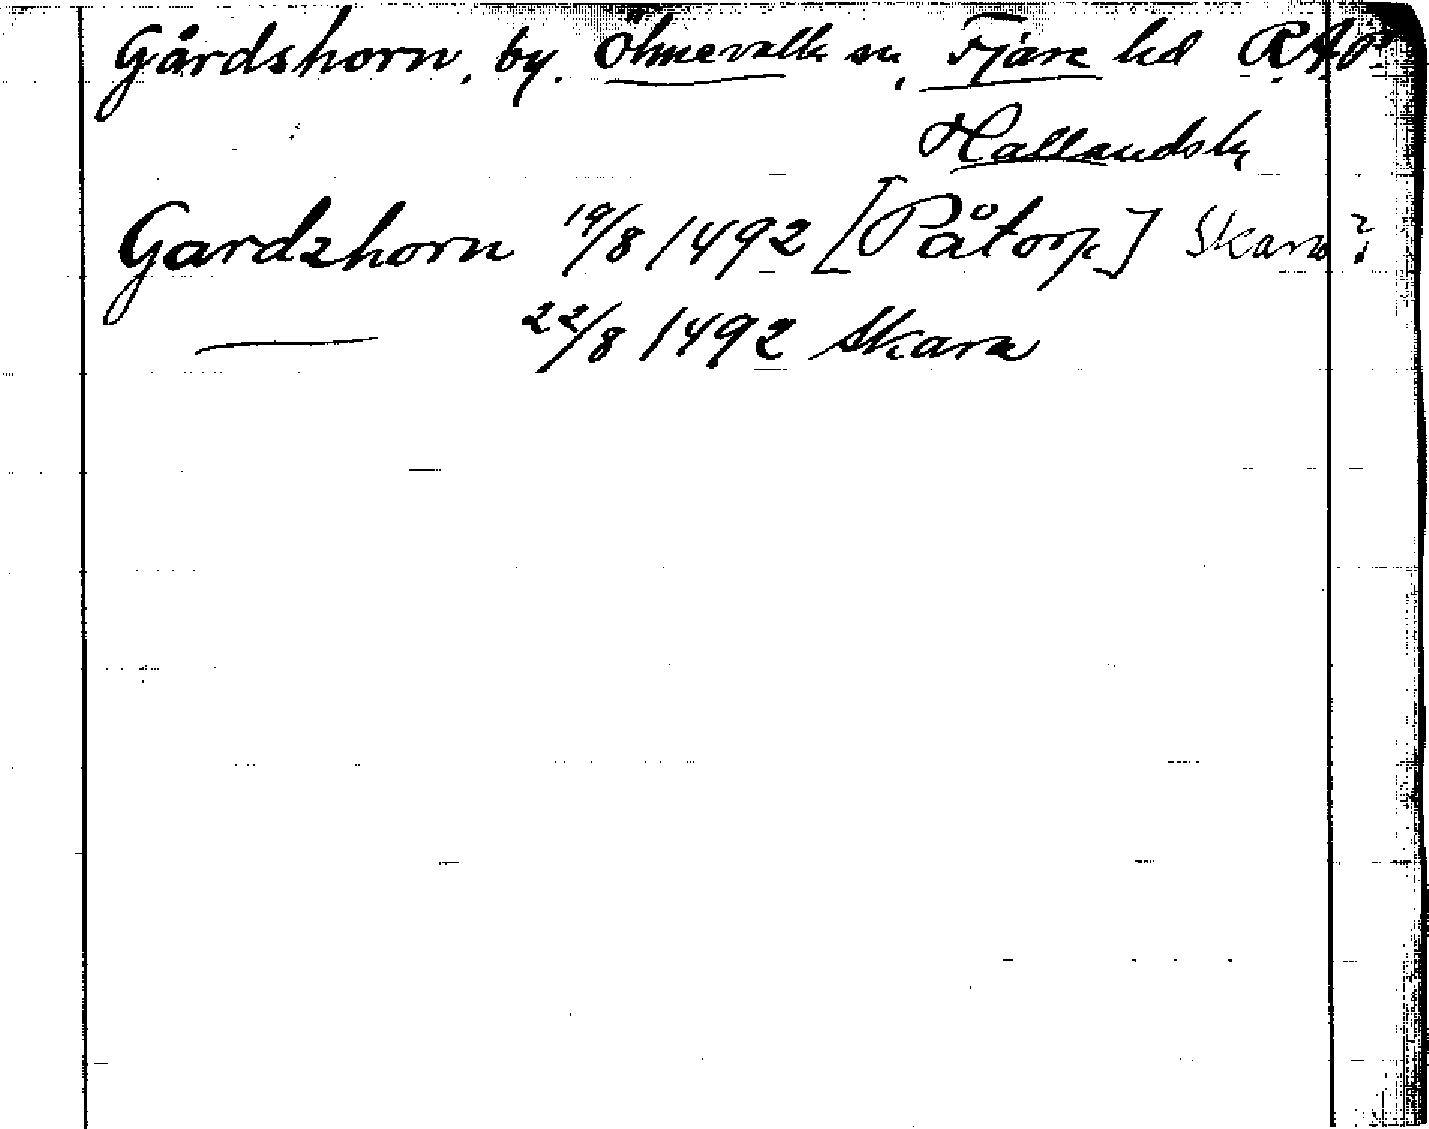 Gårdshorn, by. Ölmevalla sn, Fjäre hd RAp
Hallands l.
Gardzhorn 19/8 1492 [Påtorp] Skara?
— 22/8 1492 Skara